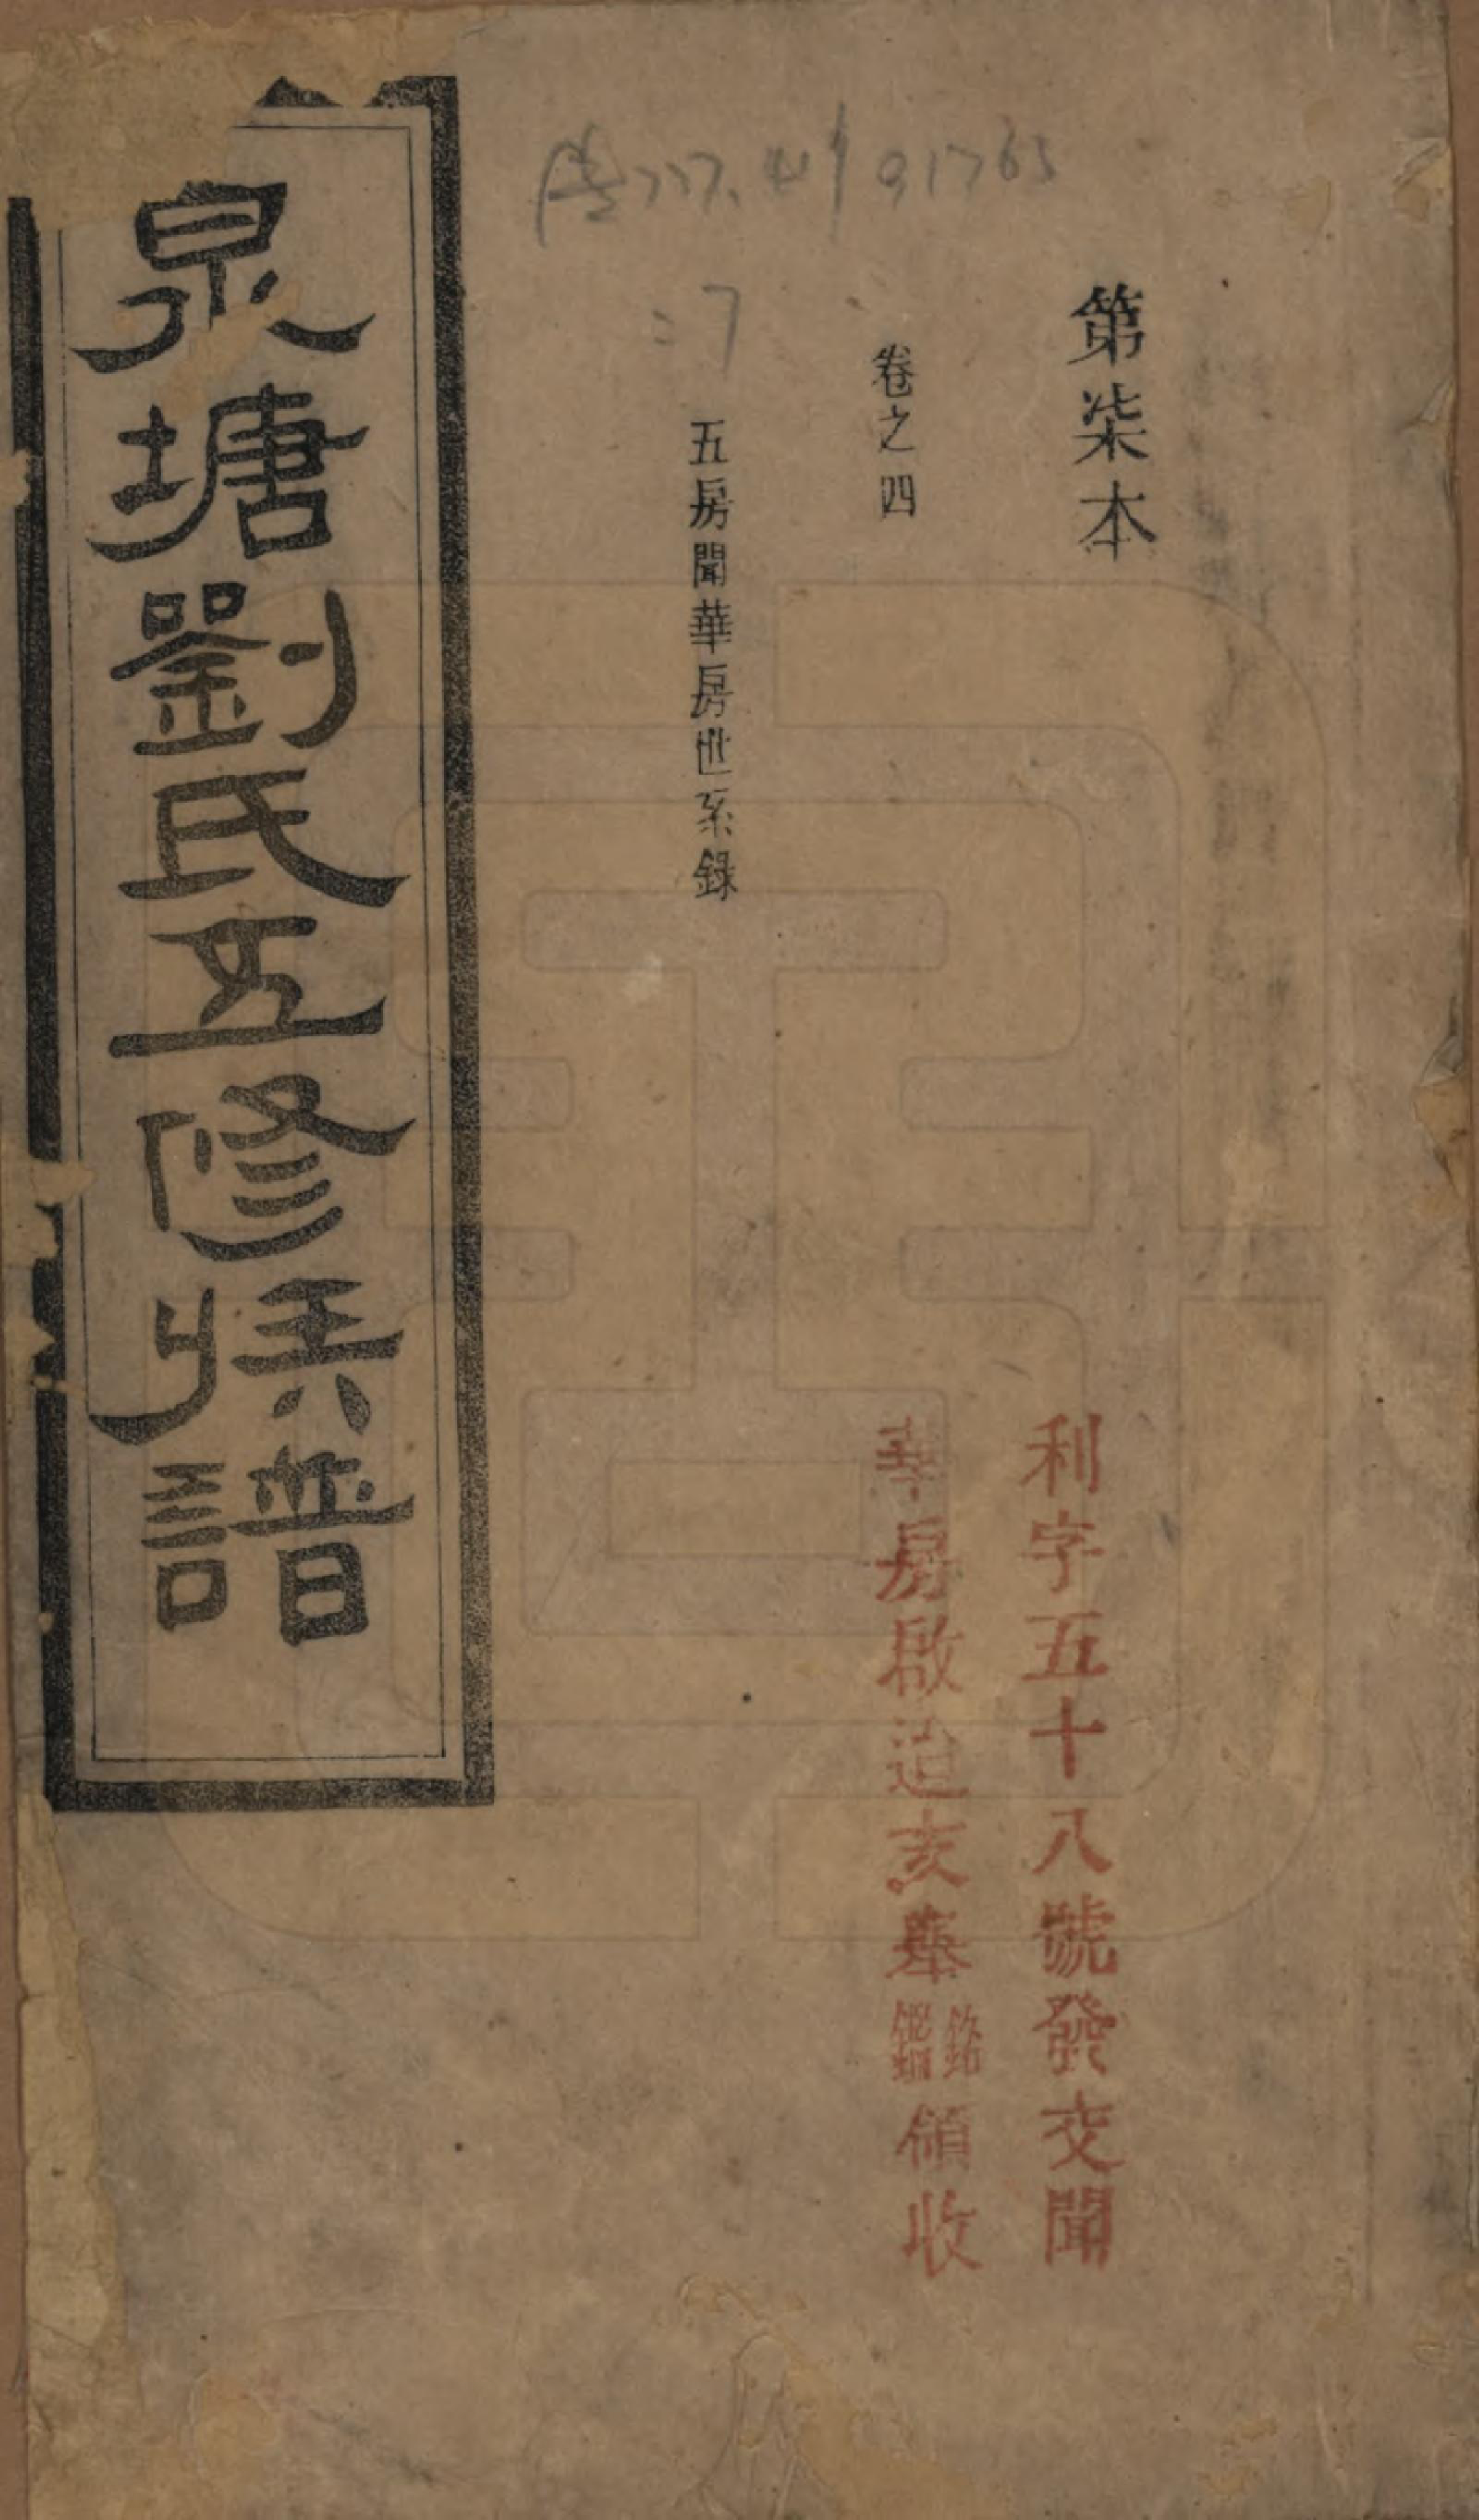 第柒本
卷之四
五房聞華房世系錄
利字五十八號發交聞
華房啟迨亥舉領收
泉塘劉氏五修族譜
777.41 91765